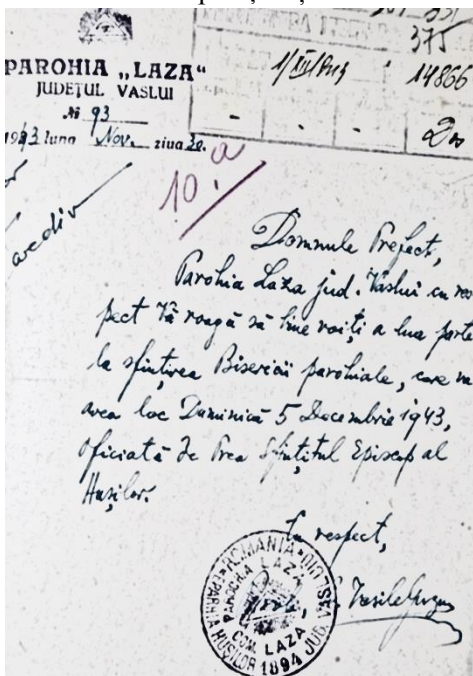 375
PAROHIA „LAZA"
JUDEȚUL VASLUI
1/XII/943 14866
№ 93
1943 luna Nov. ziua 30.
10.a
Domnule Prefect,
Parohia Laza jud. Vaslui cu res
pect Vă roagă să bine voiți a lua parte
la sfințirea Bisericii parohiale, care va
avea loc Duminică 5 Decembrie 1943,
oficiată de Prea Sfințitul Episcop al
Hușilor.
Cu respect,
Vasile
ROMANIA
PAROCHIA LAZA
COM. LAZA
EPARHIA HUȘILOR 1894 JUD. VASLUI